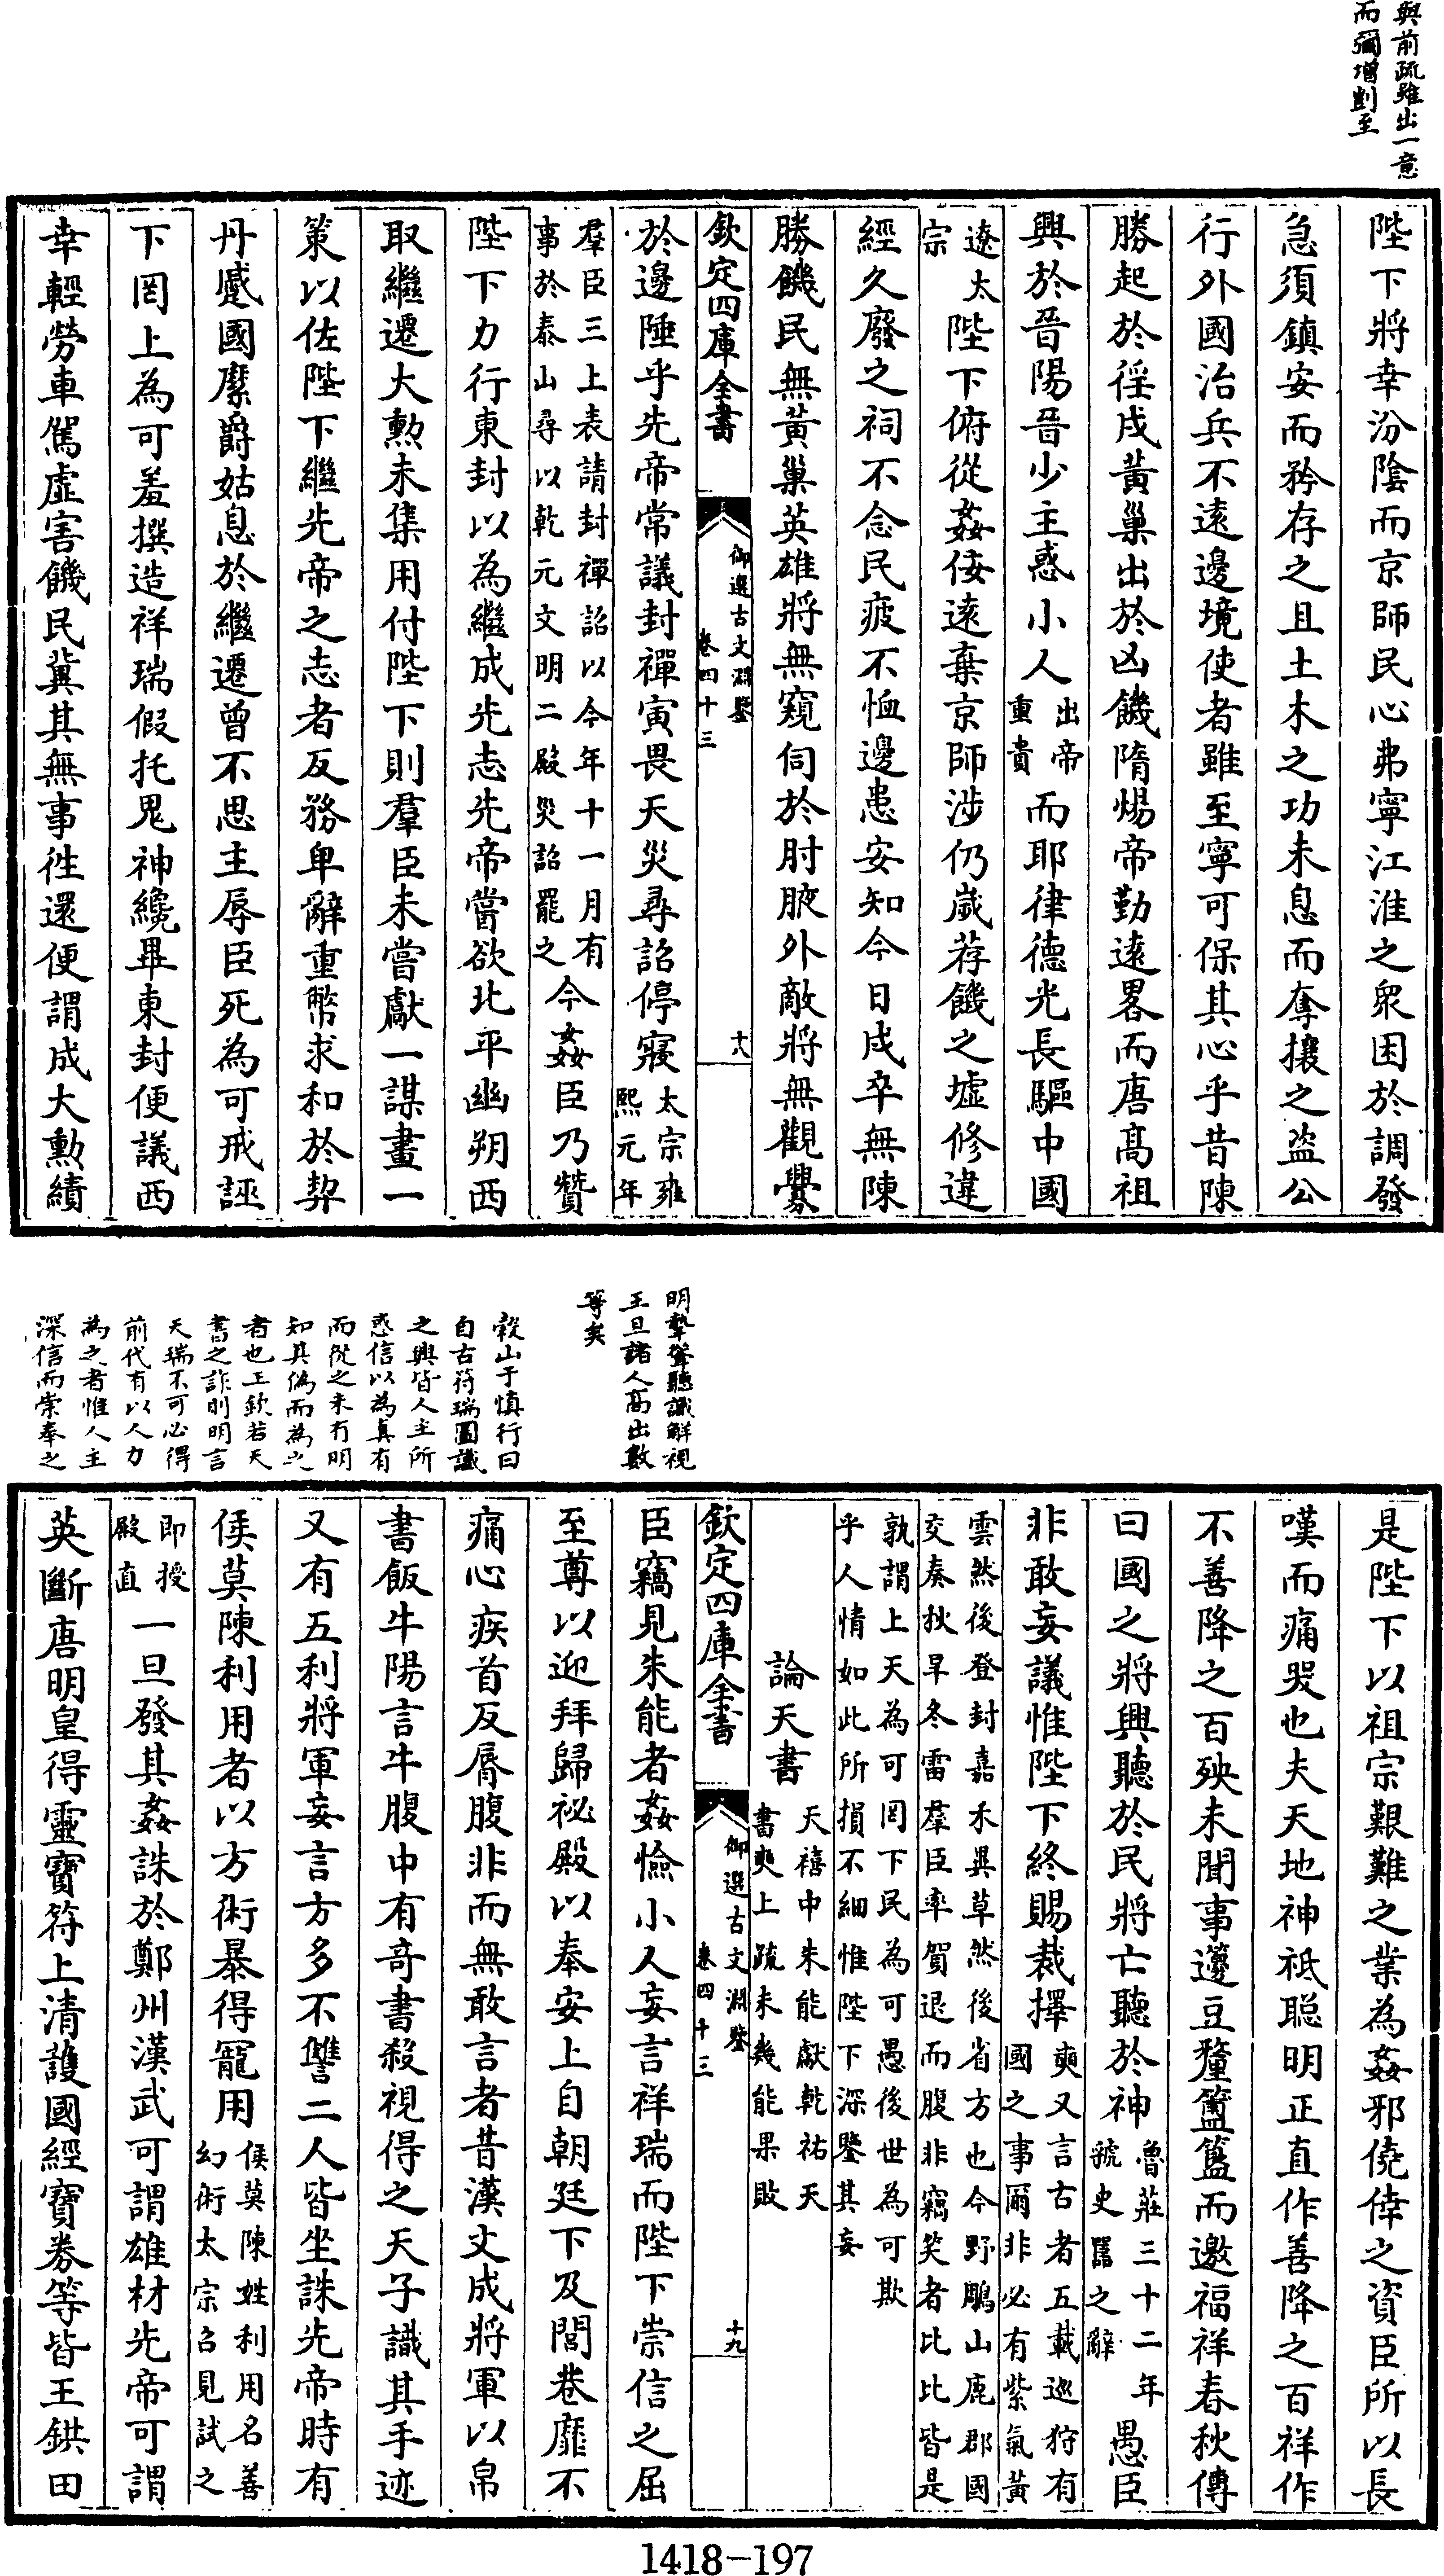 與前疏雖出一意
而彌增剴至
陛下將幸汾陰而京師民心弗寧江淮之衆困於調發
急須鎮安而矜存之且土木之功未息而奪攘之盜公
行外國治兵不逺邊境使者雖至寧可保其心乎昔陳
勝起於徭戍黃巢出於凶饑隋煬帝勤逺畧而唐髙祖
興於晉陽晉少主惑小人出帝重貴而耶律德光長驅中國
遼太宗陛下俯從姦佞逺棄京師涉仍嵗荐饑之墟修違
經久廢之祠不念民疲不恤邊患安知今日戍卒無陳
勝饑民無黃巢英雄將無窺伺於肘腋外敵將無觀釁
欽定四庫全書
御選古文淵鑒
卷四十三
十八
於邊陲乎先帝常議封禪寅畏天災尋詔停寢太宗雍熙元年
羣臣三上表請封禪詔以今年十一月有事於泰山尋以乾元文明二殿災詔罷之今姦臣乃贊
陛下力行東封以為繼成先志先帝嘗欲北平幽朔西
取繼遷大勲未集用付陛下則羣臣未嘗獻一謀畫一
策以佐陛下繼先帝之志者反務卑辭重幣求和於契
丹蹙國縻爵姑息於繼遷曾不思主辱臣死為可戒誣
下罔上為可羞撰造祥瑞假托鬼神纔畢東封便議西
幸輕勞車駕虐害饑民冀其無事徃還便謂成大勲績
明摯聳聽識解視
王旦諸人髙出數
等矣
穀山于慎行曰
自古符瑞圖讖
之興皆人主所
惑信以為真有
而從之未有明
知其偽而為之
者也王欽若天
書之詐則明言
天瑞不可必得
前代有以人力
為之者惟人主
深信而崇奉之
是陛下以祖宗艱難之業為姦邪僥倖之資臣所以長
嘆而痛哭也夫天地神祗聪明正直作善降之百祥作
不善降之百殃未聞事籩豆簠簋而邀福祥春秋傳
曰國之將興聽於民將亡聽於神魯莊三十二年虢史嚚之辭愚臣
非敢妄議惟陛下終賜裁擇奭又言古者五載廵狩有國之事爾非必有紫氣黃
雲然後登封嘉禾異草然後省方也今野鵰山鹿郡國交奏秋旱冬雷羣臣率賀退而腹非竊笑者比比皆是
孰謂上天為可罔下民為可愚後世為可欺乎人情如此所損不細惟陛下深鑒其妄
論天書天禧中朱能獻乾祐天書奭上疏未幾能果敗
欽定四庫全書
御選古文淵鑒
卷四十三
十九
臣竊見朱能者姦憸小人妄言祥瑞而陛下崇信之屈
至尊以迎拜歸祕殿以奉安上自朝廷下及閭巷靡不
痛心疾首反脣腹非而無敢言者昔漢文成將軍以帛
書飯牛陽言牛腹中有竒書殺視得之天子識其手迹
又有五利將軍妄言方多不讐二人皆坐誅先帝時有
侯莫陳利用者以方術暴得寵用侯莫陳姓利用名善幻術太宗召見試之
即授殿直一旦發其姦誅於鄭州漢武可謂雄材先帝可謂
英斷唐明皇得靈寶符上清護國經寶券等皆王鉷田
1418-197